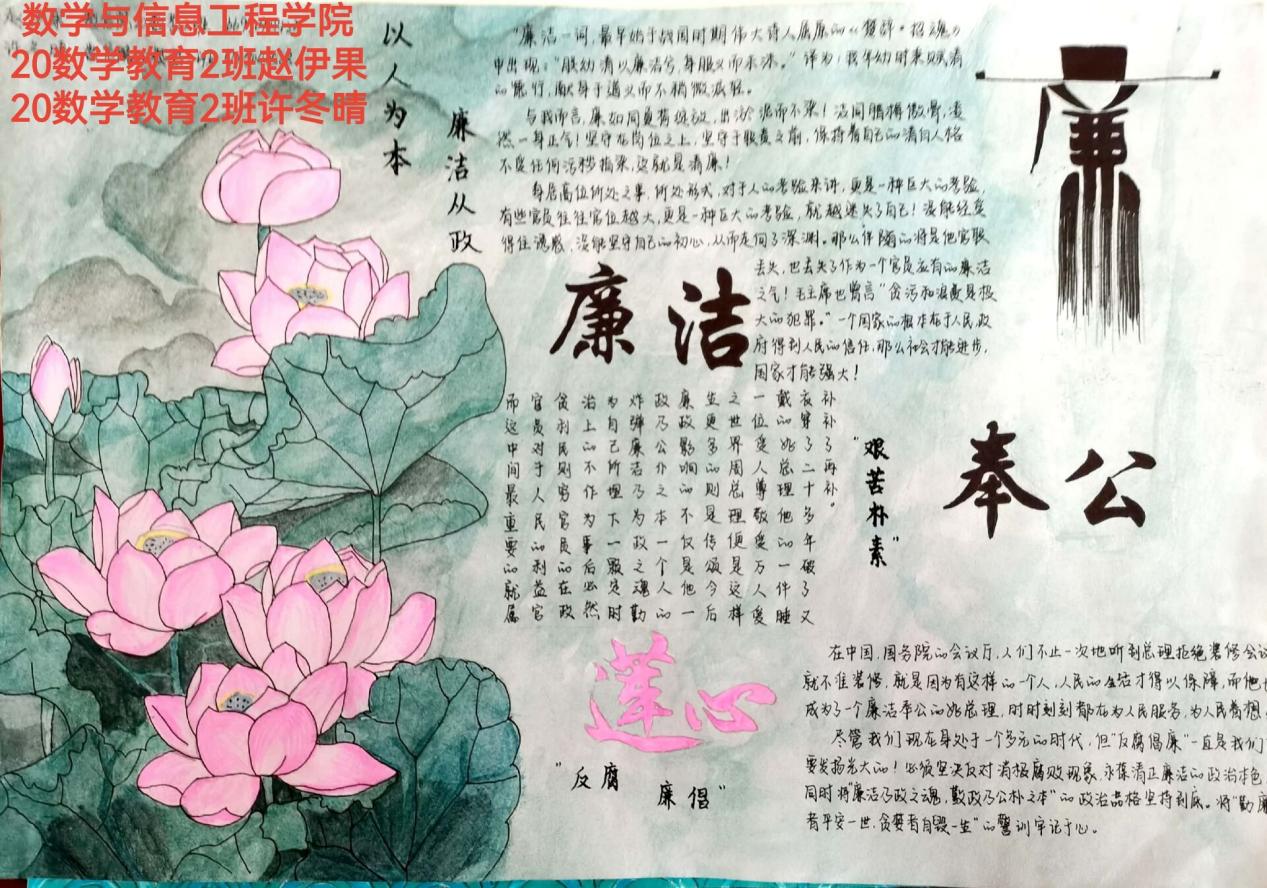 数学与信息工程学院
20数学教育2班赵伊果
20数学教育2班许冬晴
以人为本
廉洁从政
"廉洁一词,最早始于战国时期伟大诗人屈原的《楚辞·招魂》
中出现:"朕幼清以廉洁兮,身服义而未沫。"译为:我年幼时秉赋清
的懿行,献身于道义而不稍微减轻。
与我而言,廉如同夏荷绽放,出淤泥而不染!洁同腊梅傲骨,凌
然一身正气!坚守在岗位之上,坚守于职责之前,保持着自己的清白人格
不受任何污秽指染,这就是清廉!
身居高位所处之事,所处形式,对于人的考验来讲,更是一种巨大的考验,
有些官员往往官位越大,更是一种巨大的考验,就越迷失了自己!没能经受
得住诱惑,没能坚守自己的初心,从而走向了深渊。那么伴随的将是他官职
丢失,也丢失了作为一个官员应有的廉洁
之气!毛主席也曾言"贪污和浪费是极
大的犯罪。"一个国家的根本在于人民,政
府得到人民的信任,那么社会才能进步,
国家才能强大!
廉洁
廉
奉公
"艰苦朴素"
补了再补"
衣穿了二十多年破了又
戴的她总理他的一件睡
一位受人尊敬受万人爱
之世界周总理便是这样
生更多的则是传颂今后
廉政影响的不仅是他一
政乃公介之本一个人的
炸弹廉洁乃为政之魂勤
为自己所理下一段定时
治上的不作为事后必然
贪利民则穷官员的在政
官员对于人民的利益官
而这中间最重要的就属
莲心
"反腐
廉倡"
在中国,国务院的会议厅,人们不止一次地听到总理拒绝装修会议
就不准装修,就是因为有这样的一个人,人民的生活才得以保障,而他也
成为了一个廉洁奉公的好总理,时时刻刻都在为人民服务,为人民着想
尽管我们现在身处于一个多元的时代,但"反腐倡廉"一直是我们
要发扬光大的!必须坚决反对消极腐败现象,永葆清正廉洁的政治本色
同时将廉洁乃政之魂,勤政乃公朴之本"的政治品格坚持到底。将"勤廉
者平安一世,贪婪者自毁一生"的警训牢记于心。